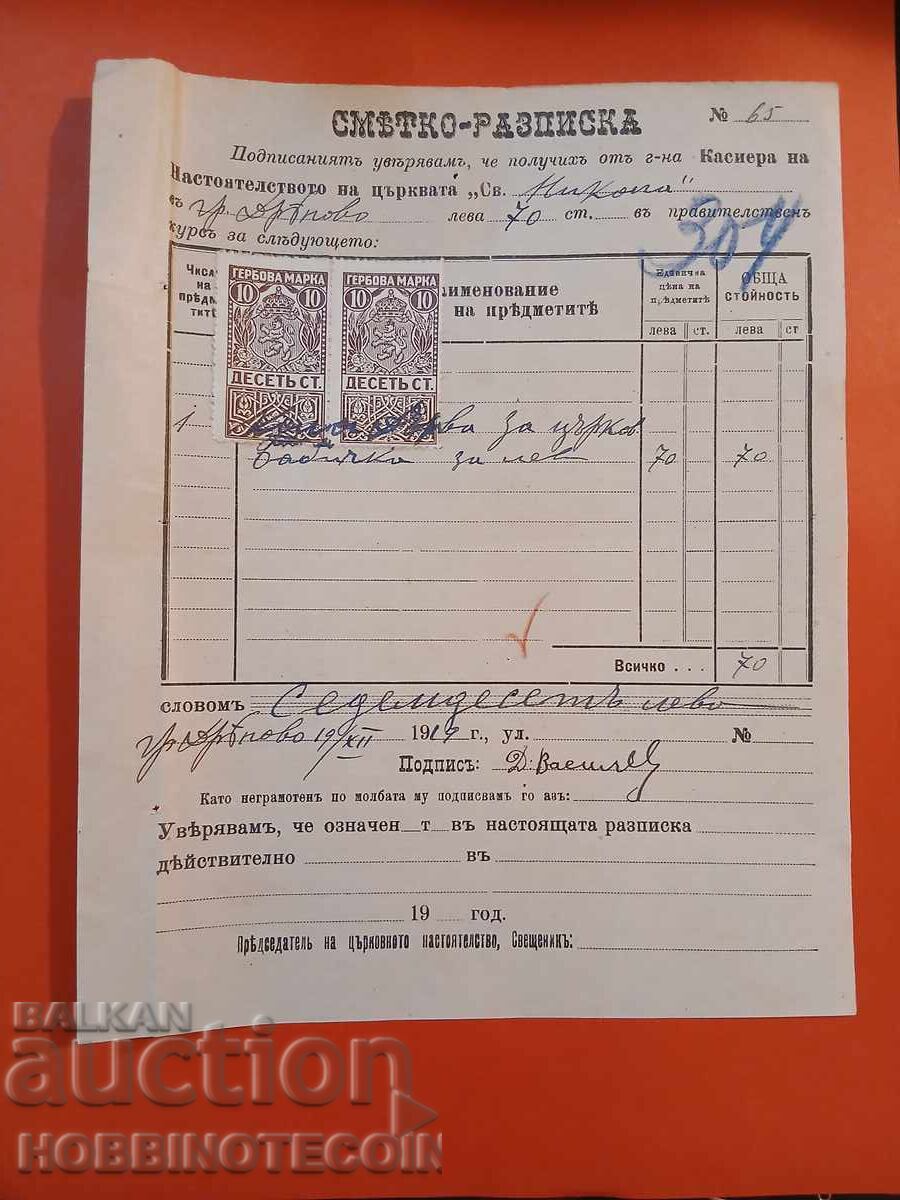 СМѢТКО-РАЗПИСКА
№ 65
Подписаниятъ увѣрявамъ, че получихъ отъ г-на Касиера на
Настоятелството на църквата „Св. Никола“
въ гр. Дрѣново лева 70 ст. въ правителственъ
курсъ за слѣдующето:
304
Числ
на
прѣдм
титѣ
именование
на прѣдметитѣ
Единична
цѣна на
прѣдметитѣ
ОБЩА
СТОЙНОСТЬ
лева ст. лева ст
ГЕРБОВА МАРКА ГЕРБОВА МАРКА
10 10 10 10
ДЕСЕТЬ СТ. ДЕСЕТЬ СТ.
1 дърва за църков
за лев 70 70
Всичко . . . 70
словомъ Седемдесетъ лева
гр. Дрѣново 19/XII 1919 г., ул. №
Подписъ: Д. Василев
Като неграмотенъ по молбата му подписвамъ го азъ:
Увѣрявамъ, че означен т въ настоящата разписка
дѣйствително въ
19 год.
Прѣдседатель на църковното настоятелство, Свещеникъ:
BALKAN
auction
HOBBINOTECOIN